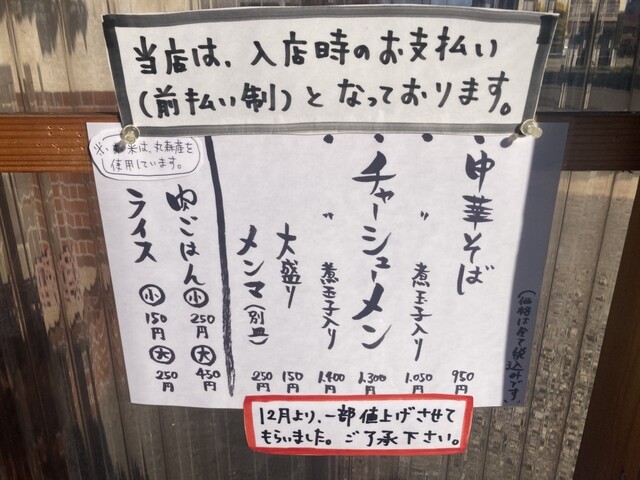 当店は、入店時のお支払い
(前払い制)となっております。
(価格は全て税込みです)
・中華そば 950円
・〃 煮玉子入り 1,050円
・チャーシューメン 1,300円
・〃 煮玉子入り 1,400円
大盛り 150円
メンマ(別皿) 250円
※、米は、丸森産を
使用しています。
肉ごはん 小 250円 大 450円
ライス 小 150円 大 250円
12月より、一部値上げさせて
もらいました。ご了承下さい。